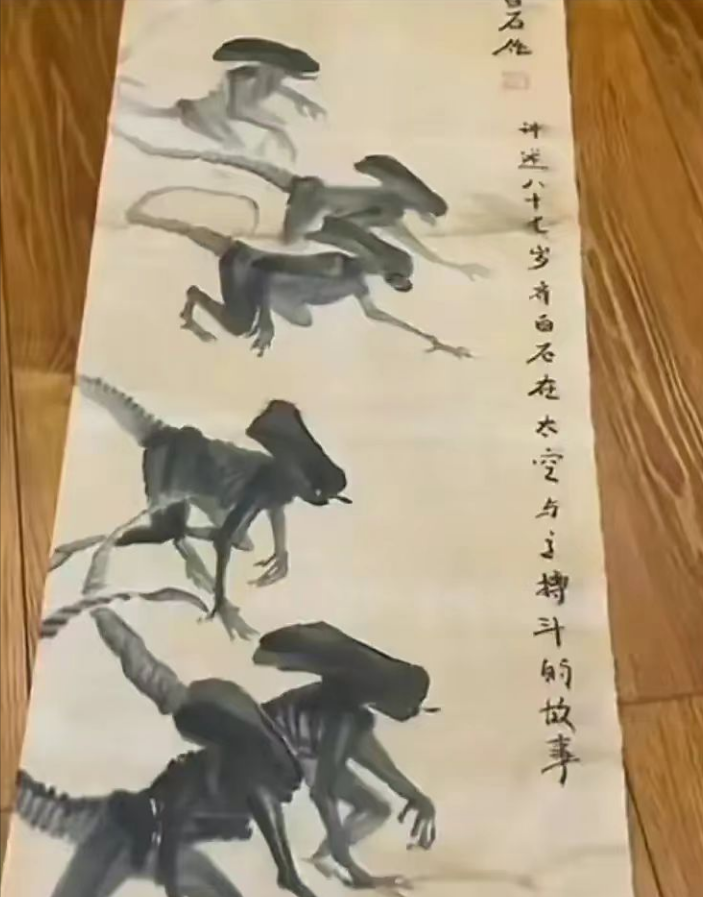 白石作
讲述八十七岁齐白石在太空与之搏斗的故事